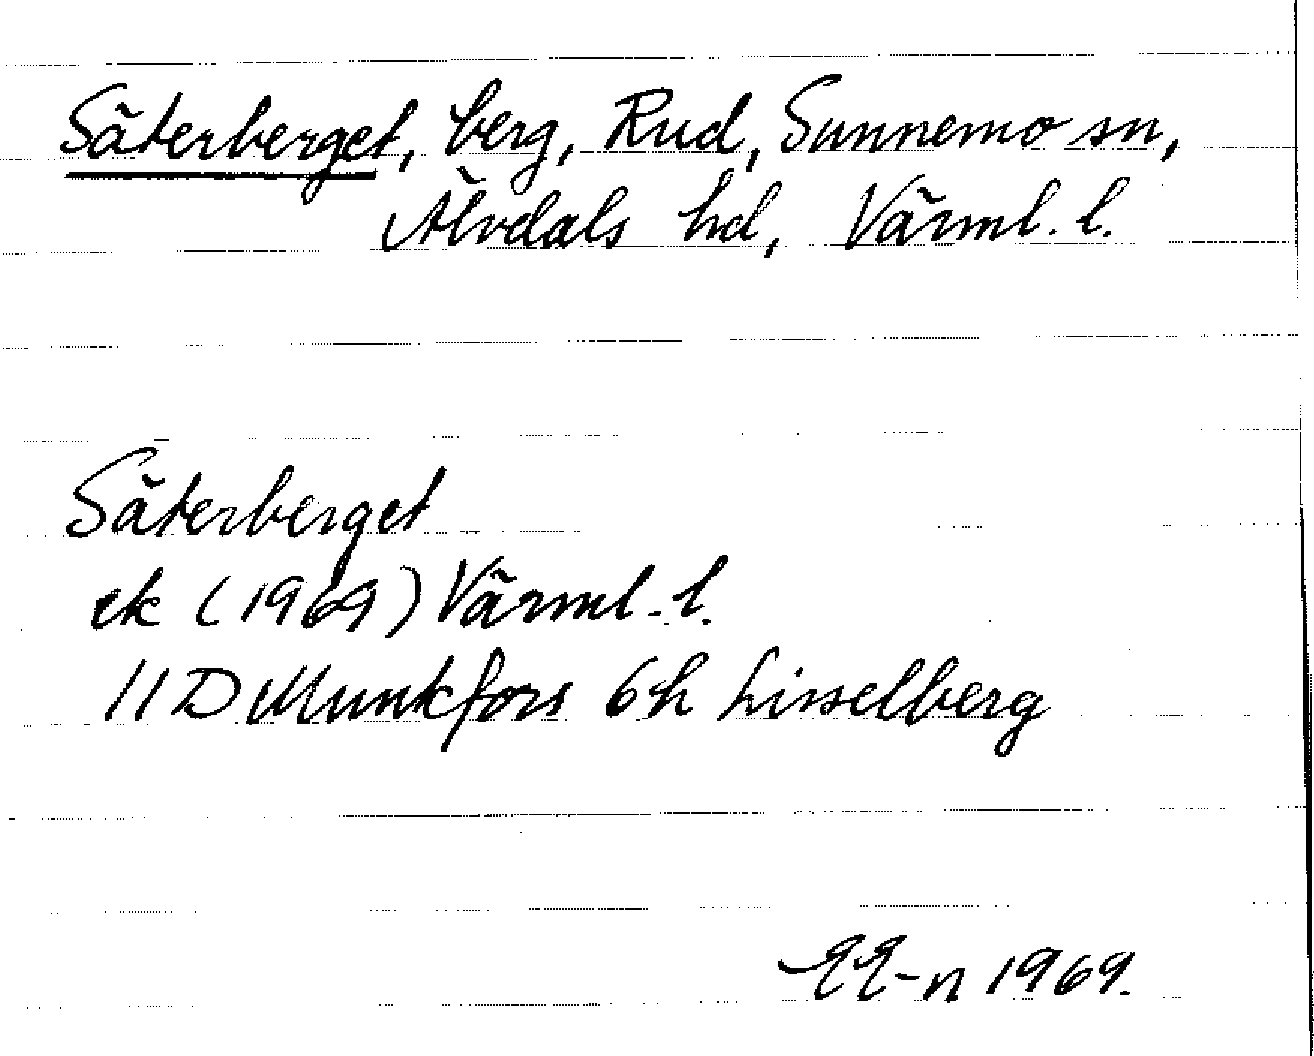 Säterberget, berg, Rud, Sunnemo sn,
Älvdals hd, Värml. l.
Säterberget
ek (1969) Värml. l.
11D Munkfors 6h Lisselberg
1969.